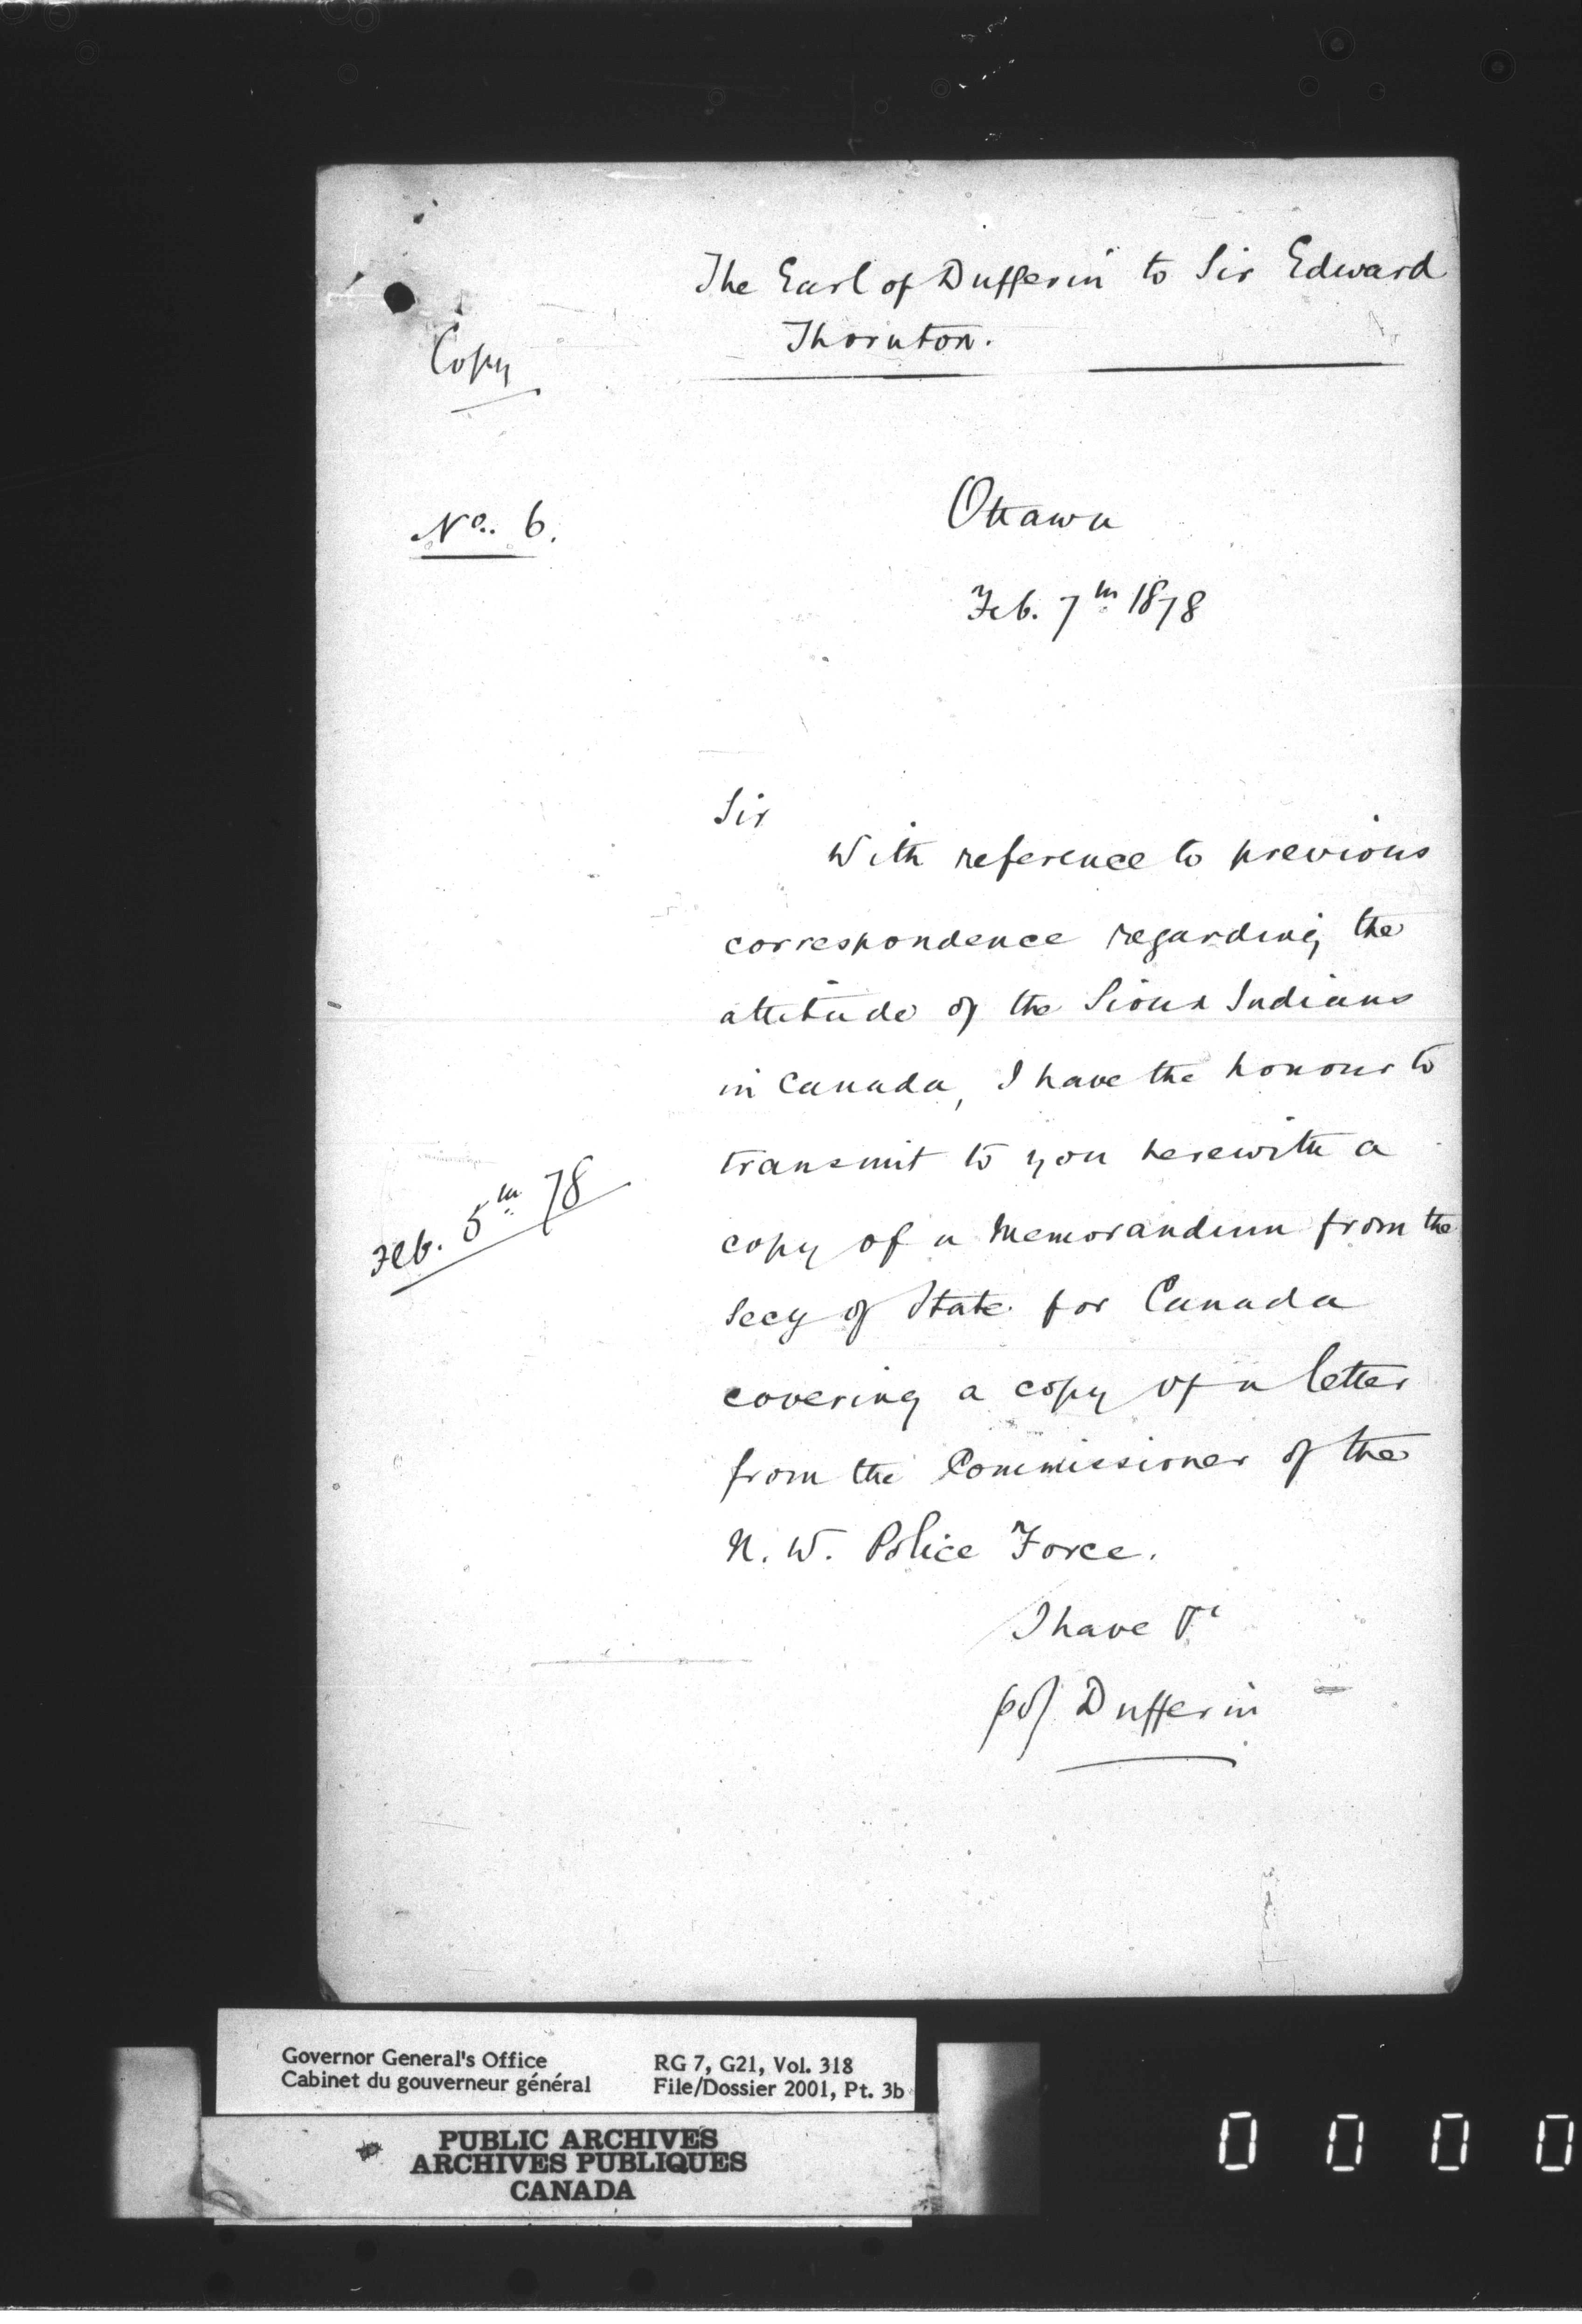 The Earl of Dufferin to Sir Edward
Thornton.
Copy
No. 6.
Ottawa
Feb. 7th 1878
Sir
With reference to previous
correspondence regarding the
attitude of the Sioux Indians
in Canada, I have the honour to
transmit to you herewith a
Feb. 5th 78
copy of a Memorandum from the
Secy of State for Canada
covering a copy of a letter
from the Commissioner of the
N. W. Police Force.
I have &c
Dufferin
Governor General's Office
Cabinet du gouverneur général
RG 7, G21, Vol. 318
File/Dossier 2001, Pt. 3b
PUBLIC ARCHIVES
ARCHIVES PUBLIQUES
CANADA
0 0 0 0